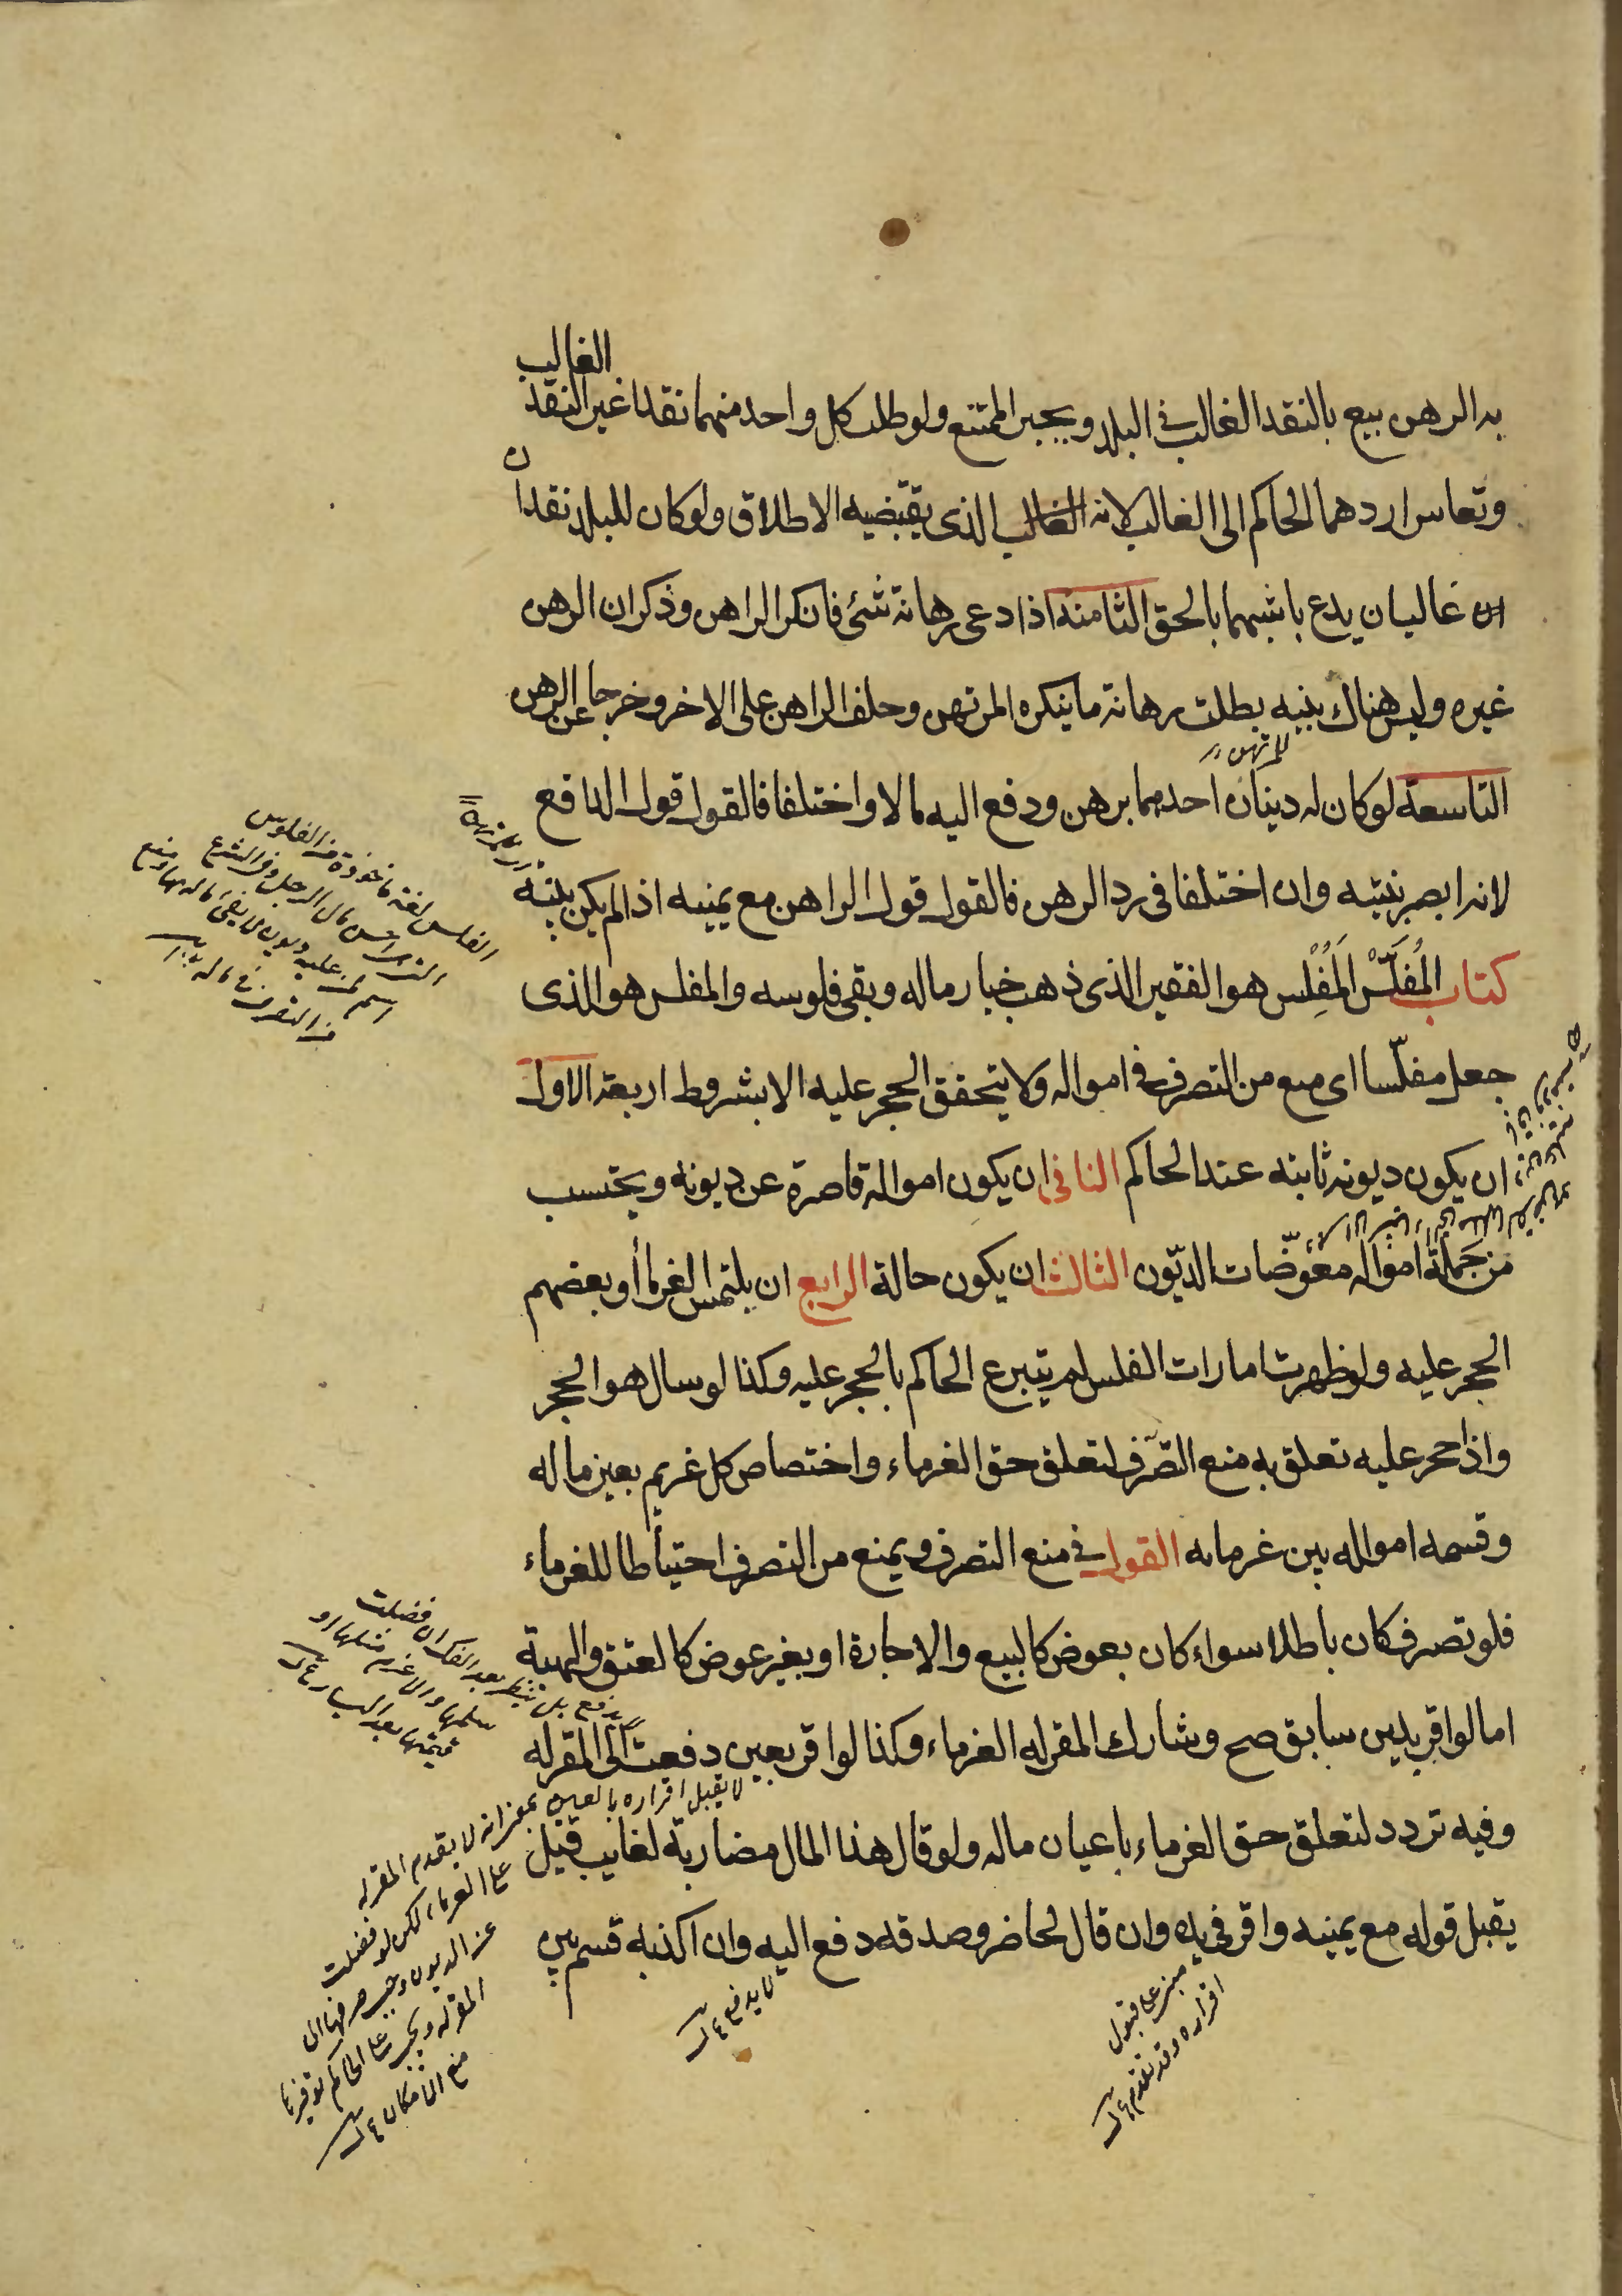 الغالب
به الرهن بيع بالنقد الغالب فى البلد ويجبر الممتنع ولو طلب كل واحد منهما نقدا غير النقد
وتعاسرا ردهما الحاكم الى الغالب لانه الغالب الذى يقتضيه الاطلاق ولو كان للبلد نقدا
ن
غالبان يدع باشبههما بالحق الثامنة اذا دعى رهانة شئ فانكر الراهن وذكر ان الرهن
غيره وليس هناك بينه بطلت رهانة ما ينكره المرتهن وحلف الراهن على الاخر وخرجا عن الرهن
للمرتهن
التاسعة لو كان له دينان احدهما برهن ودفع اليه مالا واختلفا فالقول قول الدافع
لانه ابصر بنيته وان اختلفا فى رد الرهن فالقول قول الراهن مع يمينه اذا لم يكن بينه
كتاب المُفَلَّس المُفْلِس هو الفقير الذى ذهب خيار ماله وبقى فلوسه والمفلس هو الذى
جعل مفلّسا اى منع من التصرف فى امواله ولا يتحقق الحجر عليه الا بشروط اربعة الاول
ان يكون ديونه ثابته عند الحاكم الثانى ان يكون امواله قاصرة عن ديونه ويحتسب
من جملة امواله معوّضات الديّون الثالث ان يكون حالة الرابع ان يلتمس الغرماأ و بعضهم
الحجر عليه ولو ظهرت امارات الفلس لم يتبرع الحاكم بالحجر عليه وكذا لو سال هو الحجر
واذا حجر عليه تعلق به منع التصّرف لتعلق حق الغرماء واختصاص كل غريم بعين ماله
وقسمه امواله بين غرمائه القول فى منع التصرف ويمنع من التصرف احتياطا للغرماء
فلو تصرف كان باطلا سواء كان بعوض كالبيع والاجارة او بغير عوض كالعتق والهبة
اما لو اقر بدين سابق صح وشارك المقر له الغرماء وكذا لو اقر بعين دفعت الى المقر له
وفيه تردد لتعلق حق الغرماء باعيان ماله ولو قال هذا المال مضاربة لغايب قيل
يقبل قوله مع يمينه واقر فى يده وان قال لحاضر وصدقه دفع اليه وان اكذبه قسم بين
الفلس لغة ماخوذة من الفلوس
من التصرف فى ماله
لا يدفع بل ينتظر بعد الفك ان فضلت
لا يقبل اقراره بالعين بمعنى انه لا يقدم المقر له
على الغرماء لكن لو فضلت
عن الديون وجب صرفها الى
المقر له ويجب على الحاكم توفيرها
مع الامكان
لا يدفع
مبنى على قبول
اقراره وقد تقدم